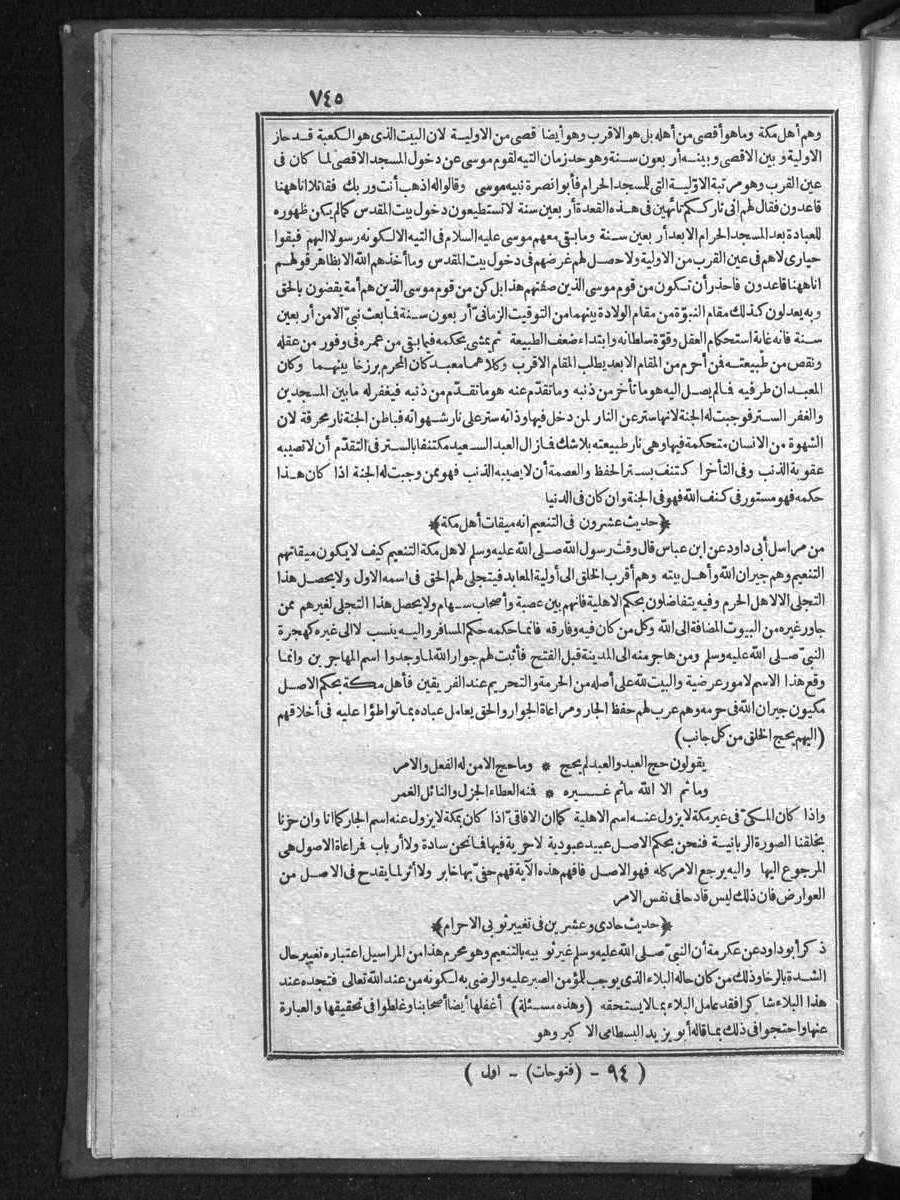 ٧٤٥
وهم أهل مكة وما هو أقصى من أهله بل هو الاقرب وهو أيضا قصى من الاولية لان البيت الذى هو الكعبة قد حاز
الاولية وبين الاقصى وبينه أربعون سنة وهو حد زمان التيه لقوم موسى عن دخول المسجد الاقصى لما كان فى
عين القرب وهو مرتبة الاوّلية التى للمسجد الحرام فأبوا نصرة نبيه موسى وقالوا له اذهب أنت وربك فقاتلا اناههنا
قاعدون فقال لهم انى تارككم تائهين فى هذه القعدة أربعين سنة لا تستطيعون دخول بيت المقدس كما لم يكن ظهوره
للعبادة بعد المسجد الحرام الابعد أربعين سنة وما بقى معهم موسى عليه السلام فى التيه الا لكونه رسولا اليهم فبقوا
حيارى لاهم فى عين القرب من الاولية ولا حصل لهم غرضهم فى دخول بيت المقدس وما أخذهم الله الا بظاهر قولهم
اناههنا قاعدون فاحذر أن تكون من قوم موسى الذين صفتهم هذا بل كن من قوم موسى الذين هم أمة يقضون بالحق
وبه يعدلون كذلك مقام النبوّة من مقام الولادة بينهما من التوقيت الزمانىّ أربعون سنة فما بعث نبىّ الامن أربعين
سنة فانه غاية استحكام العقل وقوّة سلطانه وابتداء ضعف الطبيعة ثم يمشى بحكمه فيما بقى من عمره فى وفور من عقله
ونقص من طبيعته فمن أحرم من المقام الابعد يطلب المقام الاقرب وكلاهما معبد كان المحرم برزخا بينهما وكان
المعبدان طرفيه فالم يصل اليه هو ما تأخر من ذنبه وما تقدّم عنه هو ما تقدّم من ذنبه فيغفر له ما بين المسجدين
والغفر الستر فوجبت له الجنة لانها ستر عن النار لمن دخل فيها وذاته ستر على نار شهواته فباطن الجنة نار محرقة لان
الشهوة من الانسان متحكمة فيها وهى نار طبيعته بلا شك فازال العبد السعيد مكتنفا بالستر فى التقدّم أن لا تصيبه
عقوبة الذنب وفى التأخرا كتنف بستر الحفظ والعصمة أن لا يصيبه الذنب فهو ممن وجبت له الجنة اذا كان هذا
حكمه فهو مستور فى كنف الله فهو فى الجنة وان كان فى الدنيا
﴿حديث عشرون فى التنعيم انه ميقات أهل مكة﴾
من مراسل أبى داود عن ابن عباس قال وقت رسول الله صلى الله عليه وسلم لاهل مكة التنعيم كيف لا يكون ميقاتهم
التنعيم وهم جيران الله وأهل بيته وهم أقرب الخلق الى أولية المعابد فيتجلى لهم الحق فى اسمه الاول ولا يحصل هذا
التجلى الالاهل الحرم وفيه يتفاضلون بحكم الاهلية فانهم بين عصبة وأصحاب سهام ولا يحصل هذا التجلى لغيرهم ممن
جاور غيره من البيوت المضافة الى الله وكل من كان فيه وفارقه فانما حكمه حكم المسافر واليه ينسب لا الى غيره كهجرة
النبىّ صلى الله عليه وسلم ومن هاجر منه الى المدينة قبل الفتح فأثبت لهم جوار الله لما وجدوا اسم المهاجرين وانما
وقع هذا الاسم لامور عرضية والبيت لله على أصله من الحرمة والتحريم عند الفريقين فأهل مكة بحكم الاصل
مكيون جيران الله فى حرمه وهم عرب لهم حفظ الجار ومراعاة الجوار والحق يعامل عباده بما تواطؤا عليه فى أخلاقهم
(اليهم يحج الخلق من كل جانب)
يقولون حج العبد والعبد لم يحج * وما حج الا من له الفعل والامر
وما ثم الا الله ما ثم غيره * فنه العطاء الجزل والنائل الغمر
واذا كان المكىّ فى غير مكة لا يزول عنه اسم الاهلية كما ان الافاقىّ اذا كان بمكة لا يزول عنه اسم الجار كما انا وان حزنا
بخلقنا الصورة الربانية فنحن بحكم الاصل عبيد عبودية لا حرية فيها فما نحن سادة ولا أرباب فمراعاة الاصول هى
المرجوع اليها واليه يرجع الامر كله فهو الاصل فافهم هذه الآية فهم حفىّ بها خابر ولا أثر لما يقدح فى الاصل من
العوارض فان ذلك ليس قادحا فى نفس الامر
﴿حديث حادى وعشرين فى تغيير ثوبى الاحرام﴾
ذكر أبو داود عن عكرمة أن النبىّ صلى الله عليه وسلم غير ثوبيه بالتنعيم وهو محرم هذا من المراسيل اعتباره تغيير حال
الشدة بالرخا وذلك من كان حاله البلاء الذى يوجب للمؤمن الصبر عليه والرضى به لكونه من عند الله تعالى فتجده عند
هذا البلاء شاكرا فقد عامل البلاء بما لا يستحقه (وهذه مسئلة) أغفلها أيضا أصحابنا وغلطوا فى تحقيقها والعبارة
عنها واحتجوا فى ذلك بما قاله أبو يزيد البسطامى الاكبر وهو
( ٩٤ - (فتوحات) - اول )